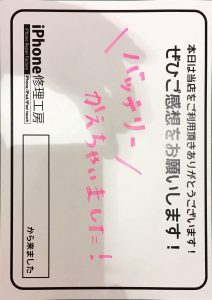 本日は当店をご利用頂きありがとうございます！
ぜひご感想をお願いします！
＼バッテリー／
かえちゃいました！
iPhone修理工房
から来ました